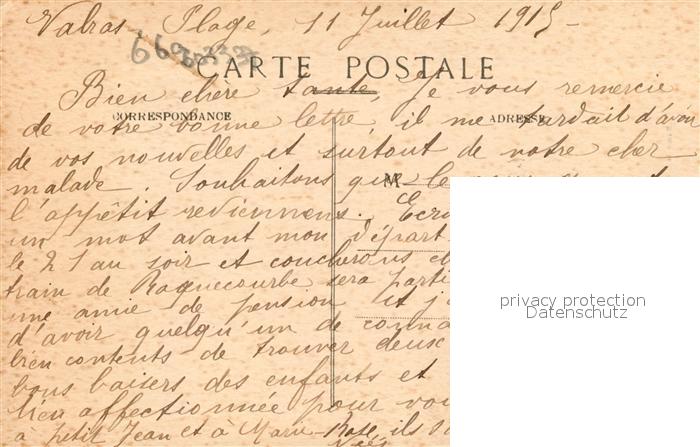 Valras Plage, 11 Juillet 1915 -
CARTE POSTALE
Bien chère tante, Je vous remercie
CORRESPONDANCE
ADRESSE
de votre bonne lettre, il me tardait d'avoir
de vos nouvelles et surtout de votre cher
malade. Souhaitons que le
M
l'appétit reviennent. Ecri
un mot avant mon départ
le 21 au soir et coucherons
train de Roquecourbe sera parti
une amie de pension et j'
d'avoir quelqu'un de conna
bien contents de trouver deux
bons baisers des enfants et
bien affectionnée pour vou
à petit Jean et à Marie-Rose, ils
privacy protection
Datenschutz